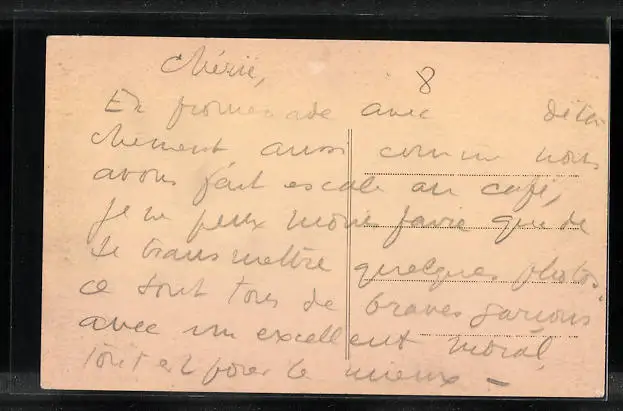 Chérie,
8
En promenade avec déta
chement aussi comme nous
avons fait escale au café,
je ne peux moins faire que de
te transmettre quelques photos.
ce sont tous de braves garçons
avec un excellent moral,
tout est pour le mieux –